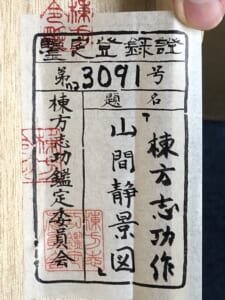 鑒定登録證
第3091号
題名
棟方志功作
山間静景図
棟方志功鑑定委員会